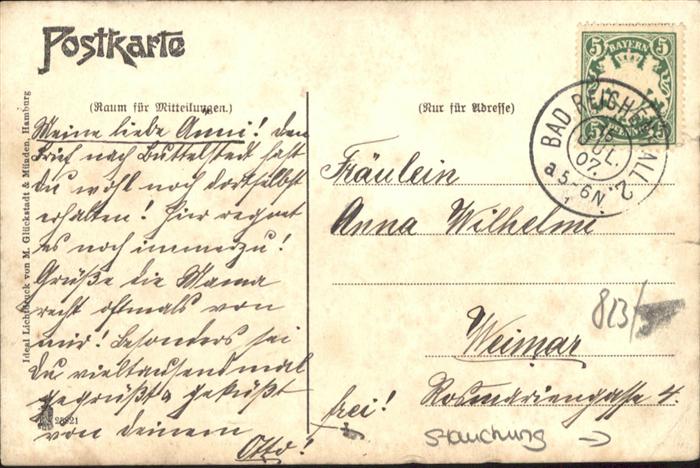 Postkarte
(Raum für Mitteilungen.)
(Nur für Adresse)
5 BAYERN 5
BAD REICHENHALL 2.
15
JUL.
07.
a 5-6 N.
Meine liebe Anni! Den
Brief nach Buttelstedt hast
du wohl noch dortselbst
erhalten! Hier regnet
es noch immerzu!
Grüße die Mama
recht oftmals von
mir! Besonders sei
du vieltausendmal
gegrüßt u. geküßt
von deinem
Otto!
Fräulein
Anna Wilhelmi
Weimar
Rosmariengasse 4.
frei!
823/
Stauchung →
28821
Ideal Lichtdruck von M. Glückstadt & Münden, Hamburg